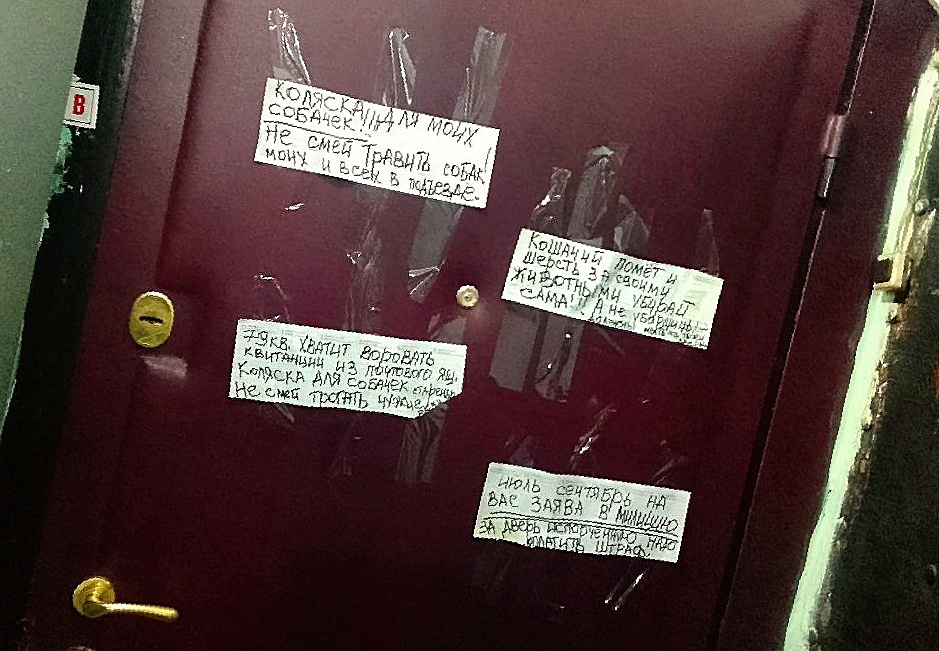 В
КОЛЯСКА!!! ДЛЯ МОИХ
СОБАЧЕК!!
НЕ СМЕЙ ТРАВИТЬ СОБАК
МОИХ И ВСЕХ В ПОДЪЕЗДЕ.
КОШАЧИЙ ПОМЁТ И
ШЕРСТЬ ЗА СВОИМИ
ЖИВОТНЫМИ УБИРАЙ
САМА!!! А НЕ УБОРЩИЦЫ-
79КВ. ХВАТИТ ВОРОВАТЬ
КВИТАНЦИИ ИЗ ПОЧТОВОГО ЯЩ.
КОЛЯСКА ДЛЯ СОБАЧЕК
НЕ СМЕЙ ТРОГАТЬ ЧУЖИЕ
ИЮЛЬ СЕНТЯБРЬ НА
ВАС ЗАЯВА В МИЛИЦИЮ
ЗА ДВЕРЬ ИСПОРЧЕННУЮ НАДО
ПЛАТИТЬ ШТРАФ.